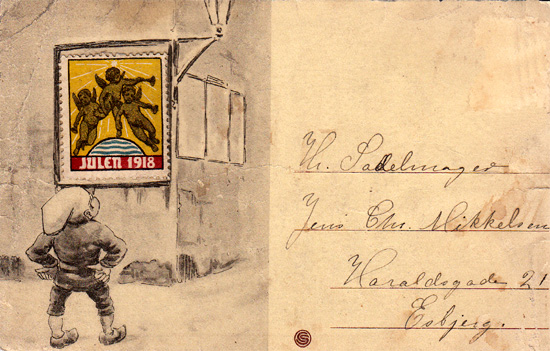 JULEN 1918
Hr. Sadelmager
Jens Chr. Mikkelsen
Haraldsgade 21
Esbjerg.